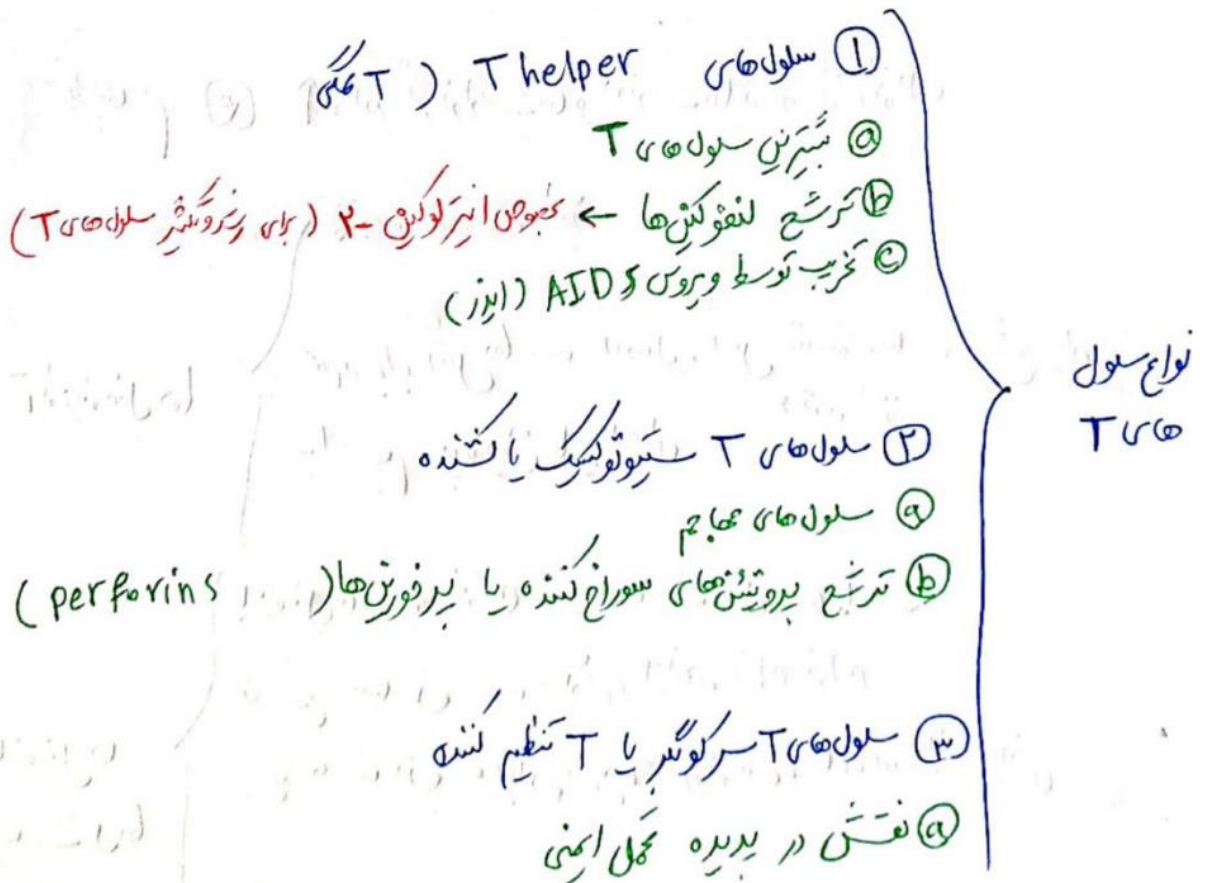 نواع سلول
های T
① سلول‌های T helper ( T کمکی
ⓐ بیشترین سلول‌های T
ⓑ ترشح لنفوکین‌ها ← بخصوص اینترلوکین -۲ ( برای رشد و تکثیر سلول‌های T)
ⓒ تخریب توسط ویروس AIDS (ایدز)
② سلول‌های T سیتوتوکسیک یا کشنده
ⓐ سلول‌های مهاجم
ⓑ ترشح پروتئین‌های سوراخ کننده یا پرفورین‌ها ( perforins )
③ سلول‌های T سرکوبگر یا T تنظیم کننده
ⓐ نقش در پدیده تحمل ایمنی